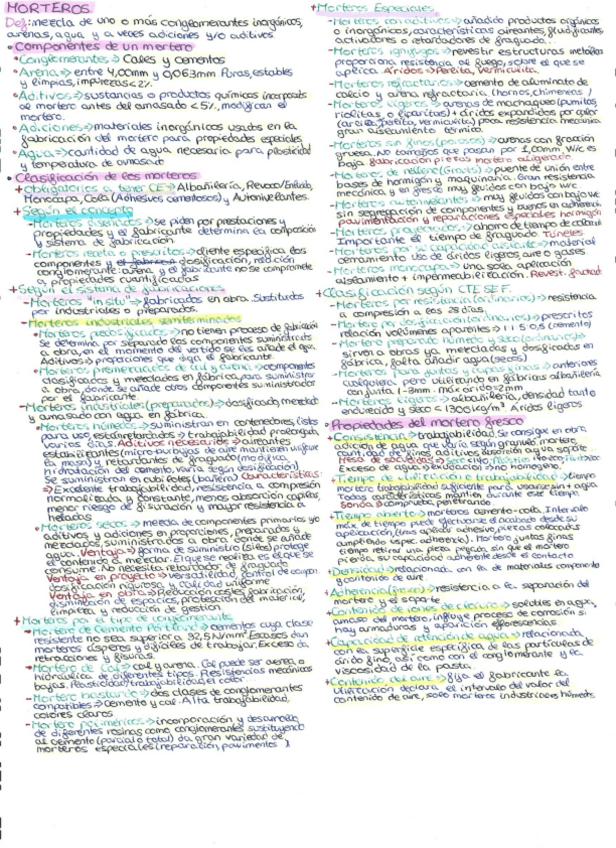 MORTEROS
Def: mezcla de uno o más conglomerantes inorgánicos,
arenas, agua y a veces adiciones y/o aditivos
• Componentes de un mortero
• Conglomerantes => Cales y cementos
• Arena => entre 4,00mm y 0,063mm Puras, estables
y limpias, impurezas < 2%.
• Aditivos => sustancias o productos químicos incorporads
al mortero antes del amasado < 5%, modifican el
mortero.
• Adiciones => materiales inorgánicos usados en la
fabricación del mortero para propiedades especiales
• Agua => cantidad de agua necesaria para plasticidad
y temperatura de amasado
• Clasificación de los morteros
+ Obligatorios a tener CE => Albañilería, Revoco/Enlucido,
Monocapa, Cola (Adhesivos cementosos) y Autonivelantes.
+ Según el concepto
- Morteros diseñados => se piden por prestaciones y
propiedades y el fabricante determina la composición
y sistema de fabricación
- Morteros receta o prescritos => cliente especifica dos
componentes y dosificación, relación
conglomerante:arena, y el fabricante no se compromete
a propiedades cuantificadas
+ Según el sistema de fabricación
- Morteros "in situ" => fabricados en obra. Sustituidos
por industriales o preparados.
- Morteros industriales semiterminados
• Morteros predosificados => no tienen proceso de fabricación
Se determina por separado los componentes suministrados
a obra, en el momento del vertido se les añade el agua.
Aditivos => proporciones que diga el fabricante.
• Morteros premezclados de cal y arena => componentes
dosificados y mezclados en fábrica, para suministrar
a obra, donde se añade otros componentes suministrados
por el fabricante.
- Morteros industriales (preparados) => dosificado, mezclado
y amasado con agua en fábrica.
• Morteros húmedos => suministran en contenedores, listos
para uso, están retardados => trabajabilidad prolongada,
varios días. Aditivos necesarios => aireantes
estabilizantes (micro-burbujas de aire mantienen unif.
la masa) y retardantes de fraguado (modifica
hidratación del cemento, varía según dosificación)
Se suministran en cubilotes (bañera) Características:
=> Excelente trabajabilidad, resistencia a compresión
normalizada y constante, menos absorción capilar,
menor riesgo de fisuración y mayor resistencia a
heladas
• Morteros secos => mezcla de componentes primarios y/o
aditivos y adiciones en proporciones, preparados y
mezclados, suministrados a obra, donde se añade
agua. Ventaja => forma de suministro (silos) protege
el contenido a mezclar. El que se realiza es el que se
consume. No necesita retardador de fraguado
Ventaja en proyecto => versatilidad, control de compon.
dosificación rigurosa y calidad uniforme
Ventaja en obra => Reducción costes fabricación,
disminución de espacios, protección del material,
limpieza y reducción de gestión.
+ Morteros por el tipo de conglomerante
- Mortero de Cemento Portland => cementos cuya clase
resistente no sea superior a 32,5 N/mm² Escasos dan
morteros ásperos y difíciles de trabajar. Exceso da
retracciones y fisuras.
- Mortero de Cal => cal y arena. Cal puede ser aérea o
hidráulica de diferentes tipos. Resistencias mecánicas
bajas. Plasticidad/trabajabilidad, el color
- Mortero bastardo => dos clases de conglomerantes
compatibles => cemento y cal. Alta trabajabilidad,
colores claros
- Mortero poliméricos => incorporación y desarrollo
de diferentes resinas como conglomerantes sustituyendo
al cemento (parcial o total) da gran variedad de
morteros especiales (reparación, pavimentos )
+ Morteros Especiales
- Morteros con aditivos => añadido productos orgánicos
o inorgánicos, características aireantes, fluidificantes,
activadores o retardadores de fraguado..
- Morteros ignífugos => revestir estructuras metálicas
proporciona resistencia al fuego, sobre el que se
aplica. Áridos => Perlita, Vermiculita.
- Morteros refractarios => cemento de aluminato de
calcio y arena refractaria (hornos, chimeneas)
- Morteros ligeros => arenas de machaqueo (pumitas,
riolitas o liparitas) + áridos expandidos por calor
(arcilla, perlita, vermiculita) poca resistencia mecánica
gran aislamiento térmico.
- Morteros sin finos (porosos) => arenas con fracción
gruesa, no consejos que pasan por 1,00mm, W/c es
baja. fabricación piezas mortero aligerado
- Morteros de relleno (Grouts) => puente de unión entre
bases de hormigón y maquinaria. Gran resistencia
mecánica y en fresco muy fluidos con bajo w/c
- Morteros autonivelantes => muy fluidos con bajo w/c
sin segregación de componentes y mejores en adherencia
pavimentación y reparaciones especiales hormigón
- Morteros proyectados => ahorro de tiempo de colocación
Importante el tiempo de fraguado túneles
- Morteros por su capacidad aislante => material
cerramiento uso de áridos ligeros, aire o gases
- Morteros monocapa => una sola aplicación
aislamiento + impermeabilización. Revest. fachad.
+ Clasificación según CTE SE F.
- Morteros por resistencia (ordinarios) => resistencia
a compresión a los 28 días.
- Mortero por dosificación (ordinarios) => prescritos
relación volúmenes aparentes => 1:1:5 0,5 (cemento)
- Mortero preparado húmedo y seco (ordinarios) =>
sirven a obra ya mezclados y dosificados en
fábrica, falta añadir agua (secos)
- Morteros para juntas y capas finas => anteriores
cualquiera, pero utilizando en fábricas albañilería
con junta 1-3mm. máx árido = 2mm
- Morteros ligeros => albañilería, densidad tanto
endurecido y seco < 1300 kg/m³. Áridos ligeros
• Propiedades del mortero fresco
+ Consistencia => trabajabilidad. Se consigue en obra
adición de agua que varía según granul. mortero
Cantidad de finos, aditivos, absorción agua soporte
Mesa de sacudidas => Seco Plástico
Exceso de agua => exudación => no homogéneo.
+ Tiempo de utilización o trabajabilidad => tiempo
mortero trabajabilidad suficiente para usarse sin + agua
Todas características mantienen durante este tiempo.
Sonda => comprueba penetrando
+ Tiempo abierto => morteros cemento-cola. Intervalo
máx de tiempo puede efectuarse el acabado desde su
aplicación (unas capas adhesivo, piezas colocadas
cumpliendo espec. adherencia). Mortero juntas finas
tiempo retirar una pieza pegada sin que el mortero
pierda su capacidad adherente desde el contacto
+ Densidad => relacionada con la de materiales componentes
y contenido de aire
+ Adherencia (fresco) => resistencia a la separación del
mortero y el soporte
+ Contenido de iones de cloruro => solubles en agua,
amasado del mortero influye proceso de corrosión si
hay armaduras y aparición eflorescencias
+ Capacidad de retención de agua => relacionada
con la superficie específica de las partículas de
árido fino, así como con el conglomerante y la
viscosidad de la pasta.
+ Contenido del aire => fija el fabricante la
utilización declara el intervalo del valor del
contenido de aire, sólo morteros industriales húmeds.